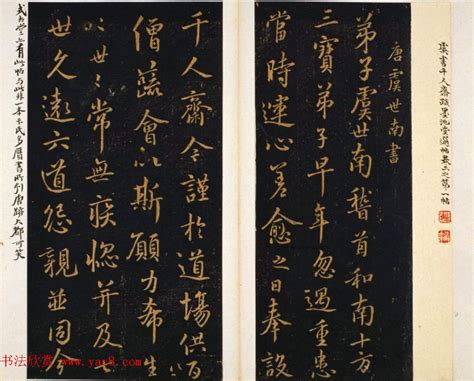 虞書千人齋疏墨池堂
第一帖
唐虞世南書
弟子虞世南稽首和南十方
三寶弟子早年忽遇重患
當時運心差愈之日奉設
千人齋今謹於道場供
僧蔬會以斯願力希生
〻世〻常無疾惱并及七
世久遠六道怨親並同今
堂亦有此帖與此非一本米氏多贋書所刻唐跡大都可笑
书法欣赏
www.yac8.com